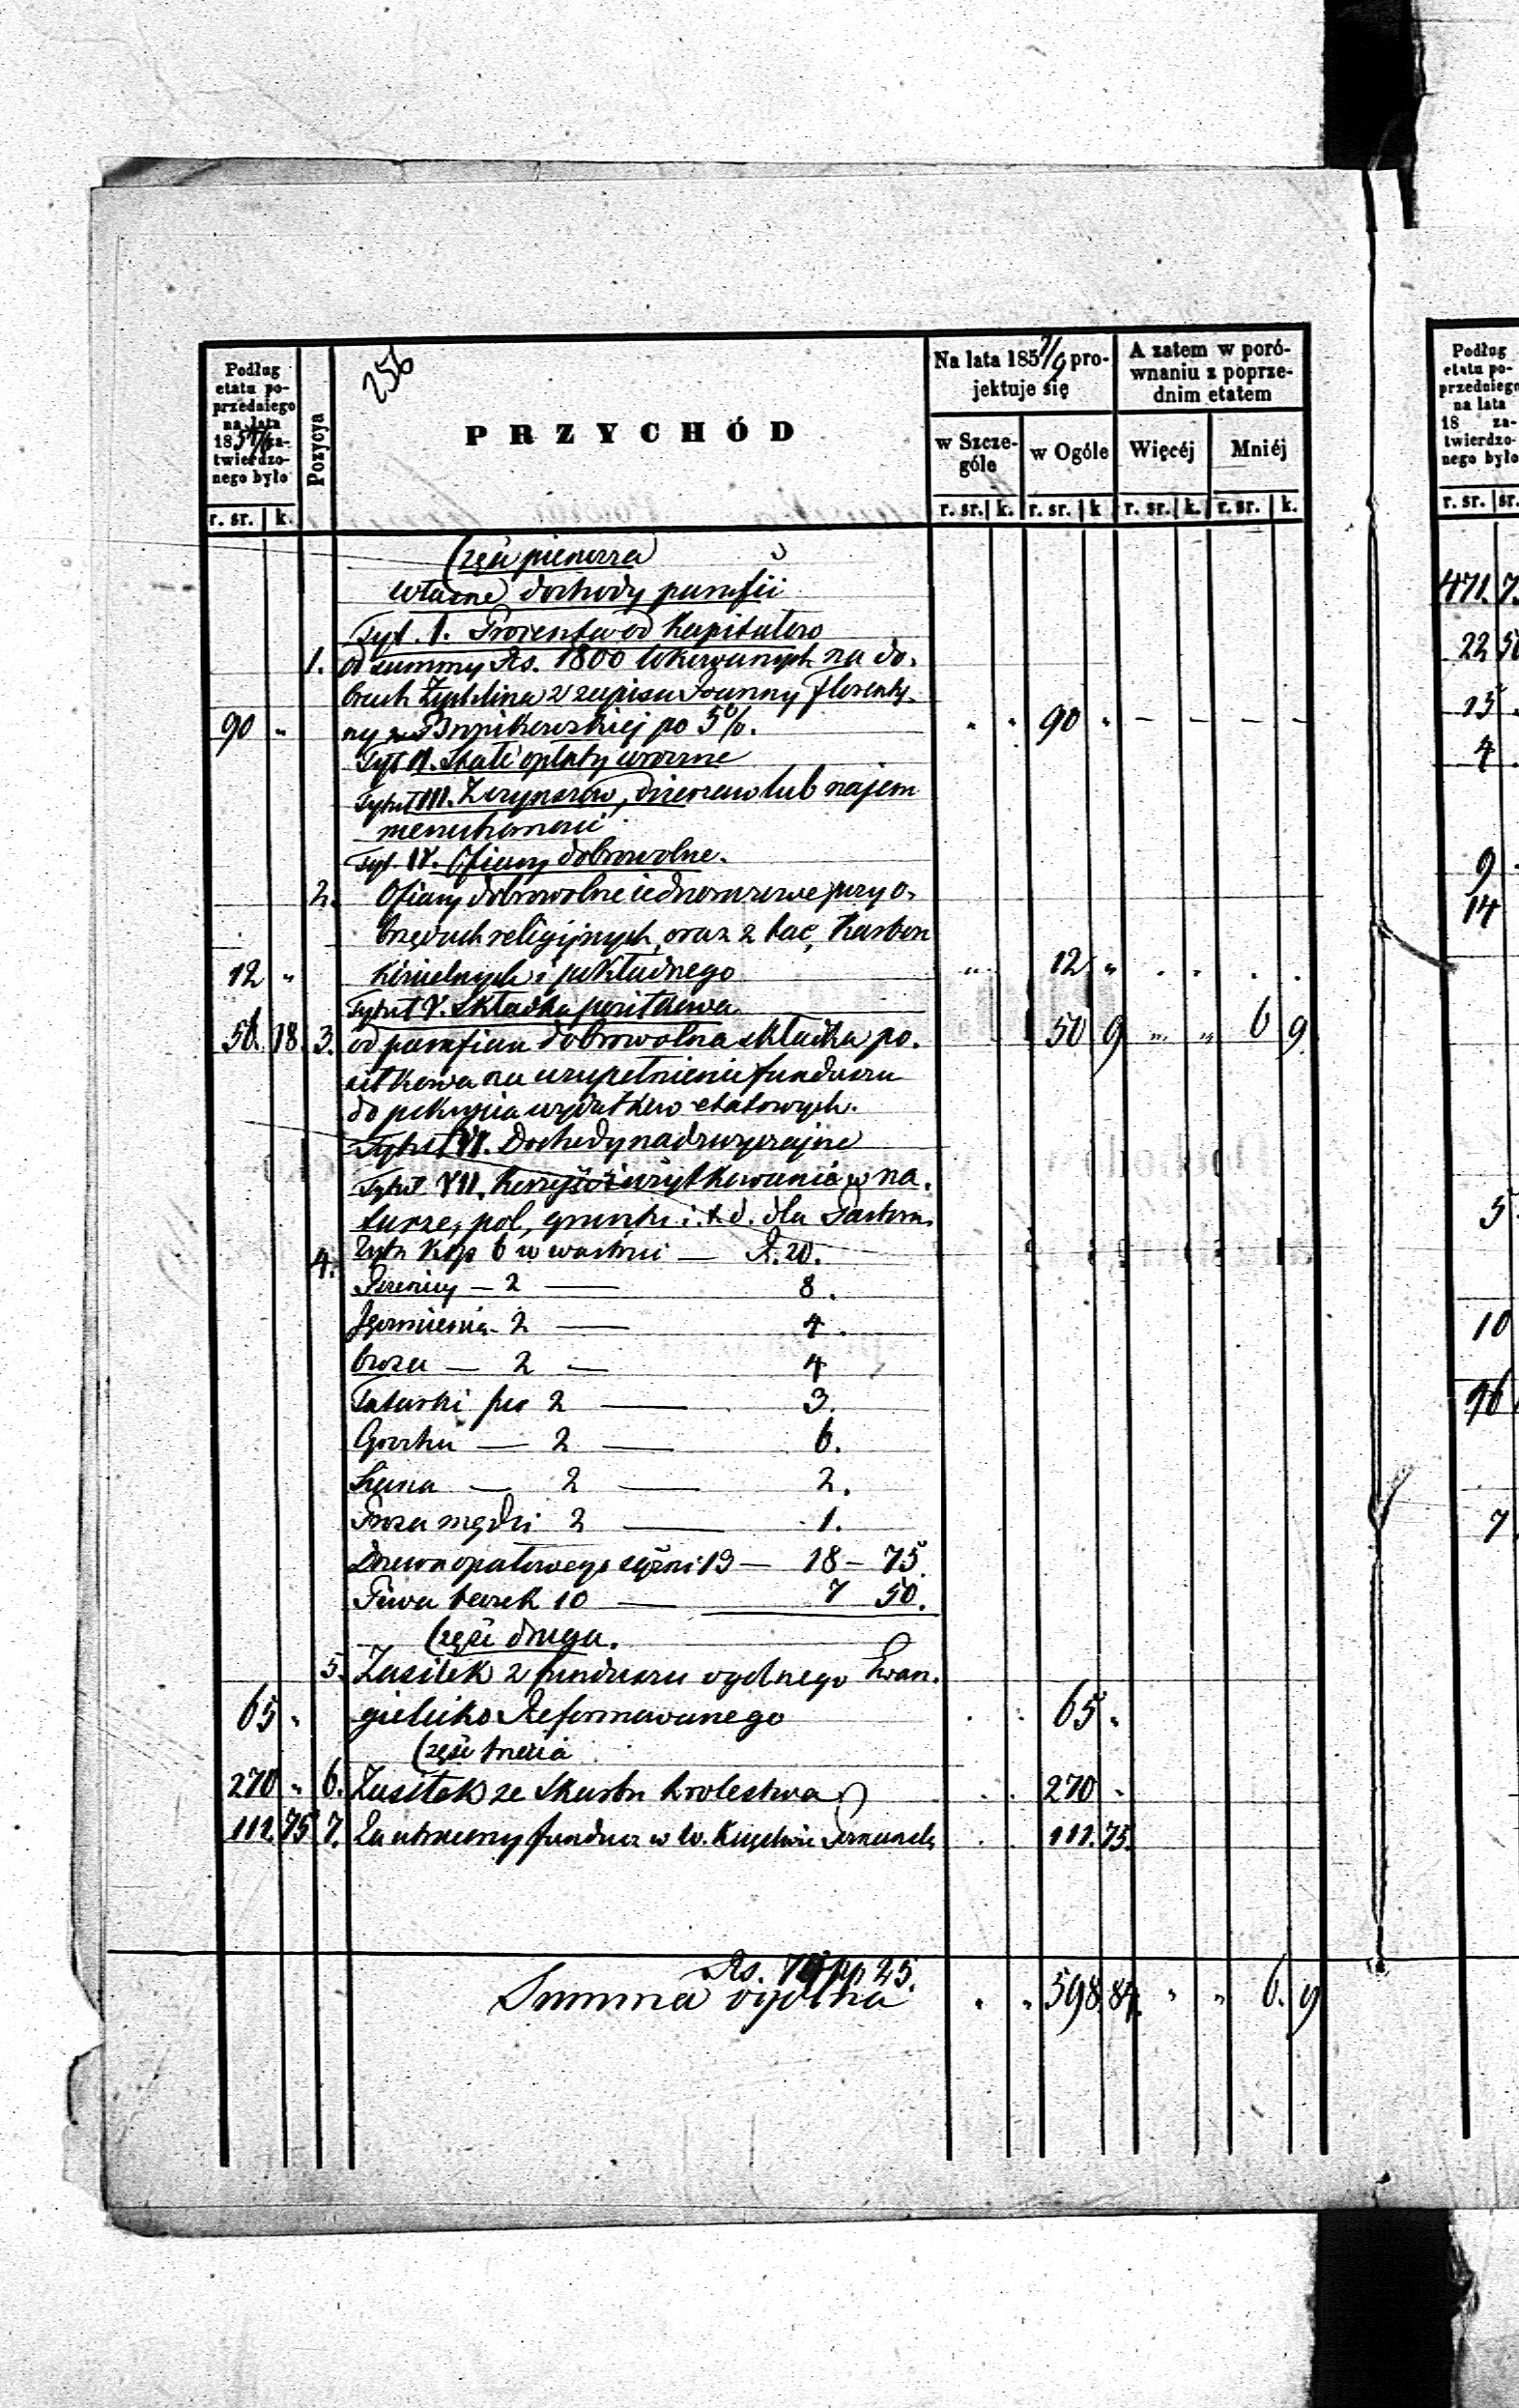 256
Podług etatu poprzedniego na lata 185 4/6 zatwierdzonego było
Pozycya
PRZYCHÓD
Na lata 185 7/9 projektuje się
A zatem w porównaniu z poprzednim etatem
w Szczególe
w Ogóle
Więcéj
Mniéj
r. sr. k. r. sr. k. r. sr. k r. sr. k. r. sr. k.
Część pierwsza
Własne dochody parafii
Tyt. I. Procenta od Kapitałów
1. od summy Rs. 1800 lokowanych na do-
brach Żychlina z zapisu Joanny Florenty-
90 " ny Bronikowskiej po 5%. " " 90 " - - - -
Tyt II. Stałe opłaty wieczne
Tytuł III. Z czynszów, dzierzaw lub najem
nieruchomości
Tyt. IV. Ofiary dobrowolne.
2. Ofiary dobrowolne jednorazowe przy o-
brzędach religijnych, oraz z tac, Karbon
12 " Kościelnych i pokładnego " 12 "
Tytuł V. Składka posiłkowa
56. 18. 3. od parafian dobrowolna składka po-
siłkowa na uzupełnienie funduszu 50 9 " " 6 9
do pokrycia wydatków etatowych.
Tytuł VI. Dochody nadzwyczajne
Tytuł VII. Korzyści i użytkowania w na-
turze, pol, gruntu i. t. d. dla Pastora.
4. Żyta Kop 6 w wartości — R. 20.
Pszenicy — 2 — 8.
Jęczmienia - 2 — 4.
Owsa — 2 — 4
Tatarki po 2 — 3.
Grochu — 2 — 6.
Siana — 2 — 2.
Prosa mędli 2 — 1.
Drzewa opałowego sążni 13 — 18 — 75.
Piwa beczek 10 — 7 50.
Część druga.
5. Zasiłek z funduszu ogólnego Ewan-
65 " gielicko Reformowanego 65 "
Część trzecia
270 " 6. Zasiłek ze Skarbu Królestwa 270 "
111. 75 7. Za utracony fundusz w W. Księstwie Poznańsk 111. 75.
Rs. 74 kp 25.
Summa ogólna " " 598 84. " " 6. 9
Podług etatu poprzedniego na lata 18 zatwierdzonego było
r. sr. sr.
471. 7.
22 50
15
4
9
14
5
10
7